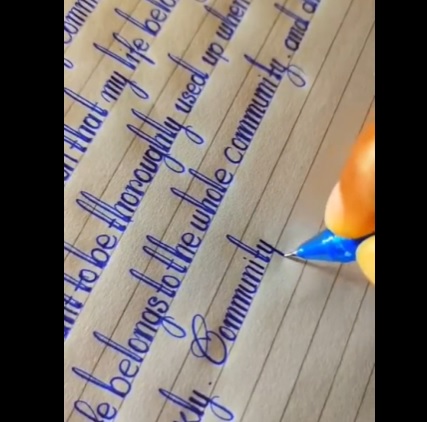 that my life
to be thoroughly used up when
belongs to the whole community, and
Community